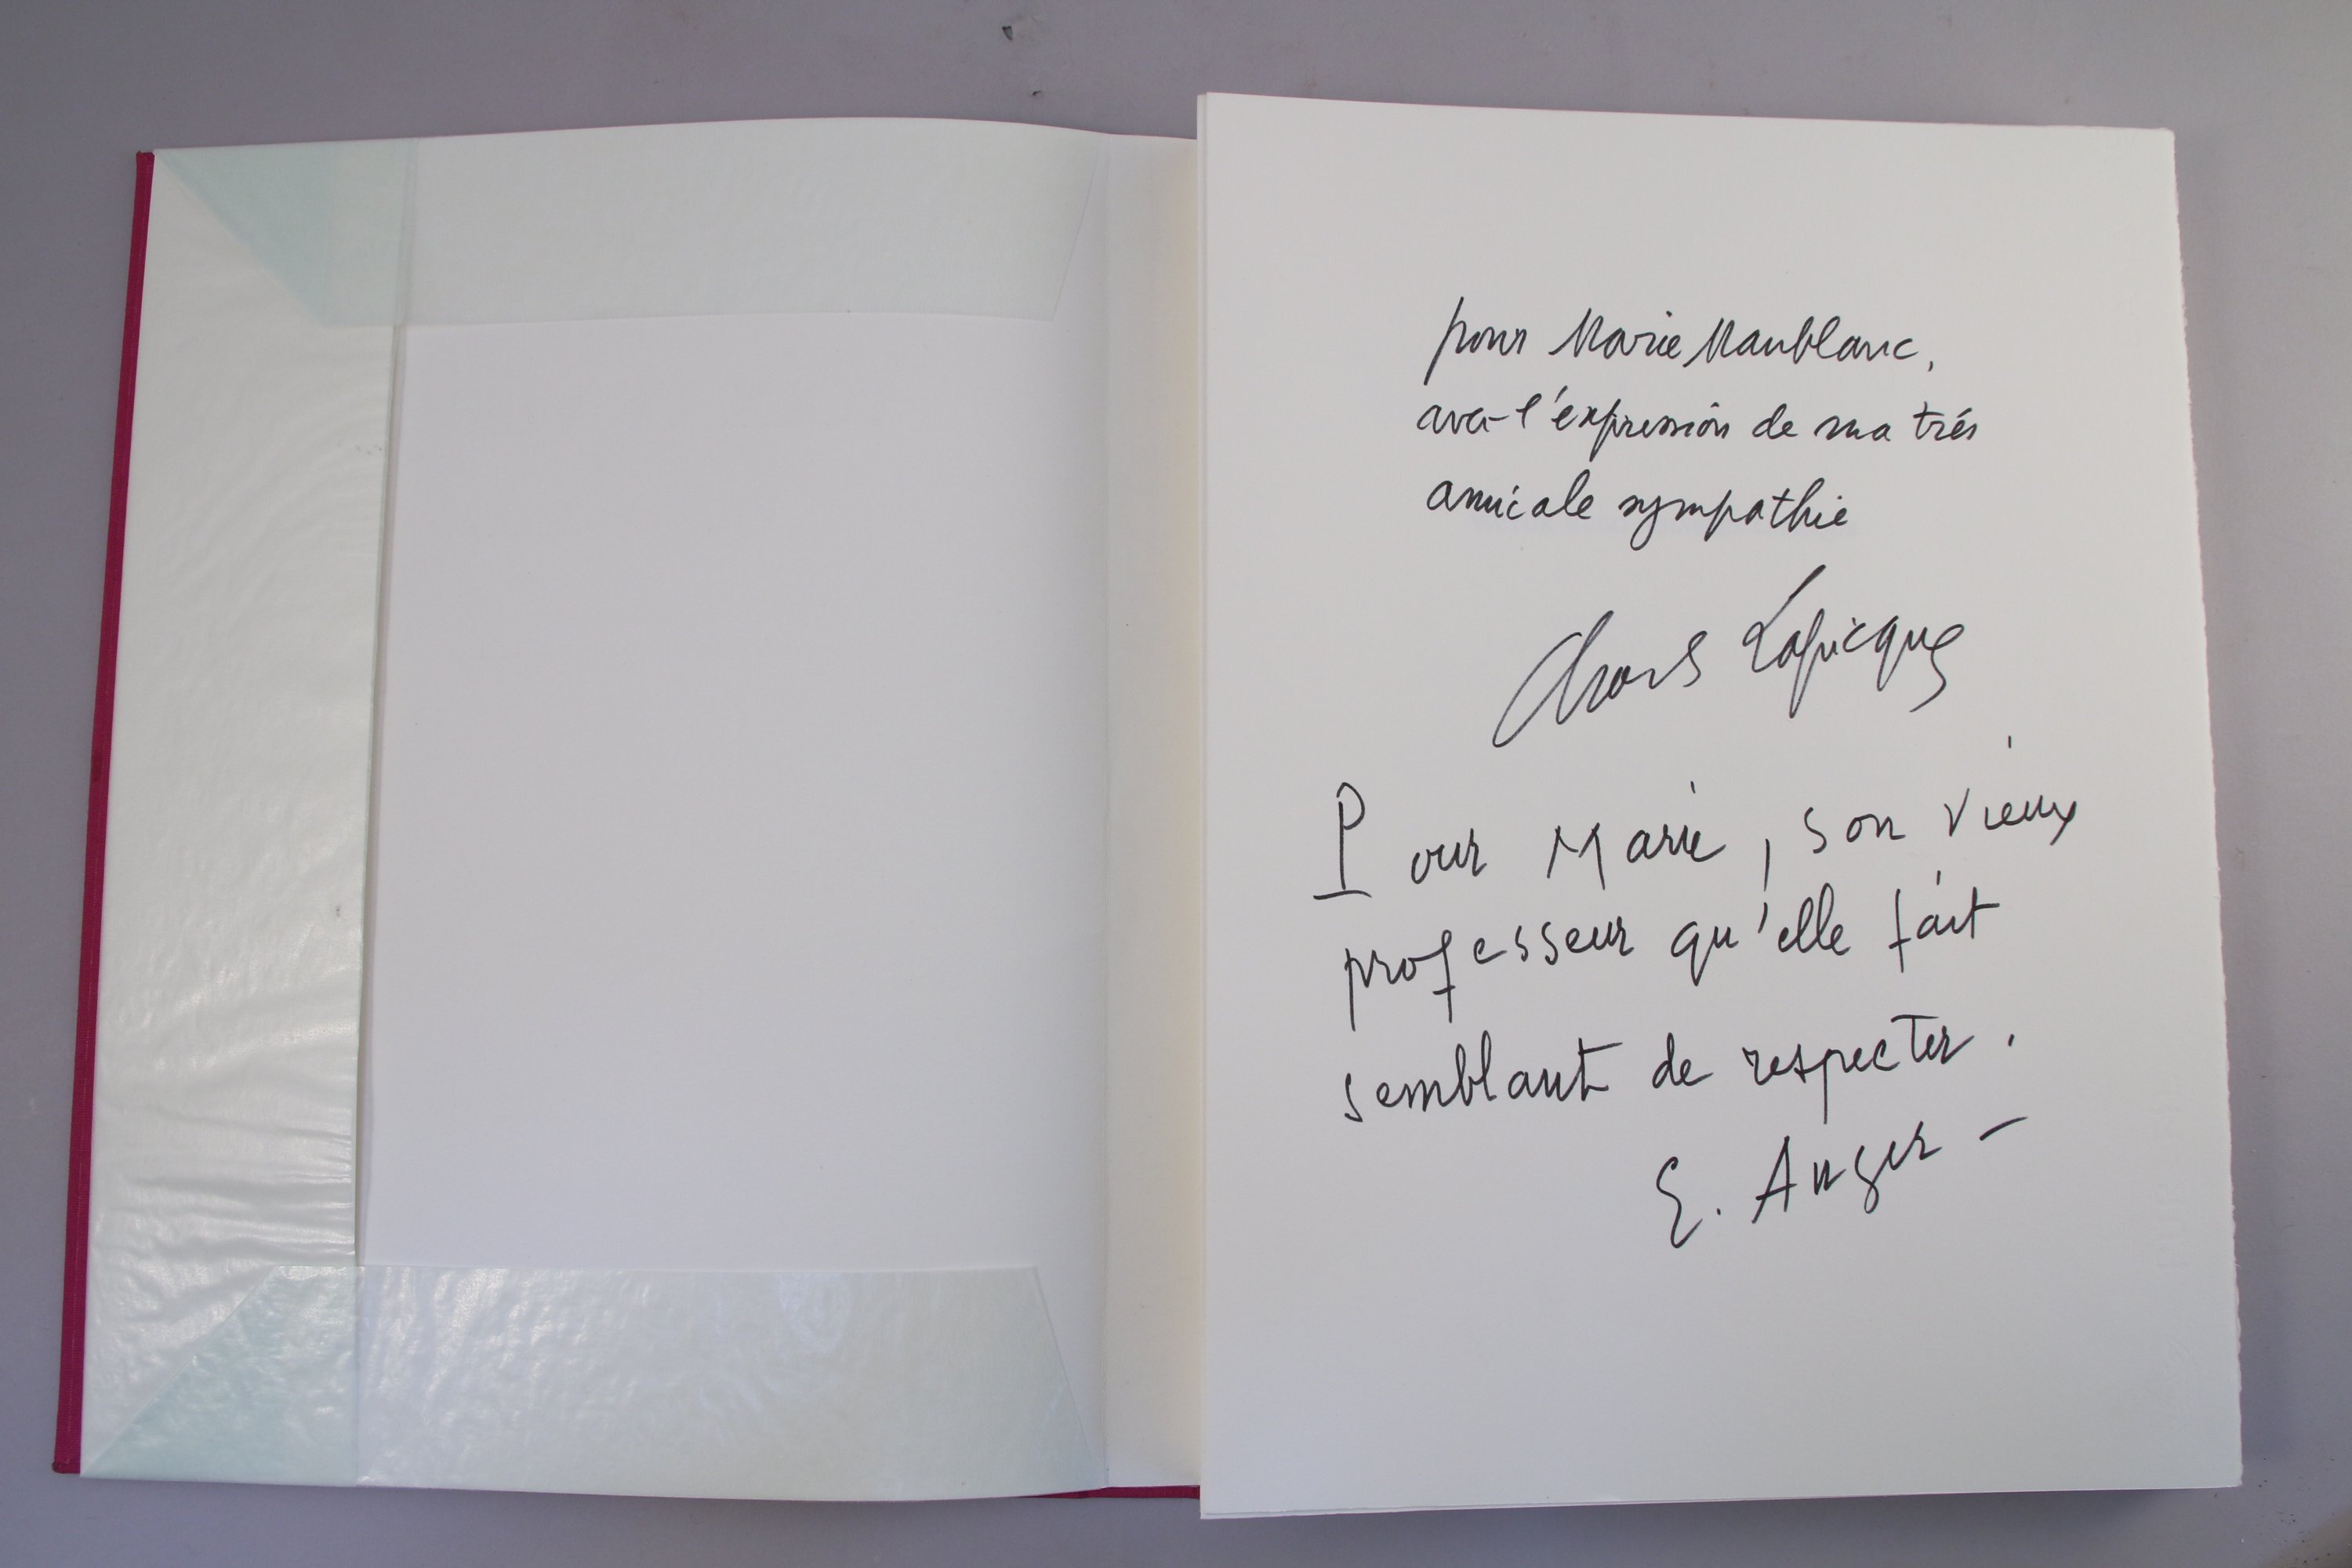 pour Marie Maublanc,
avec l'expression de ma très
amicale sympathie
Charles Lapicque
Pour Marie, son vieux
professeur qu'elle fait
semblant de respecter.
E. Anger –